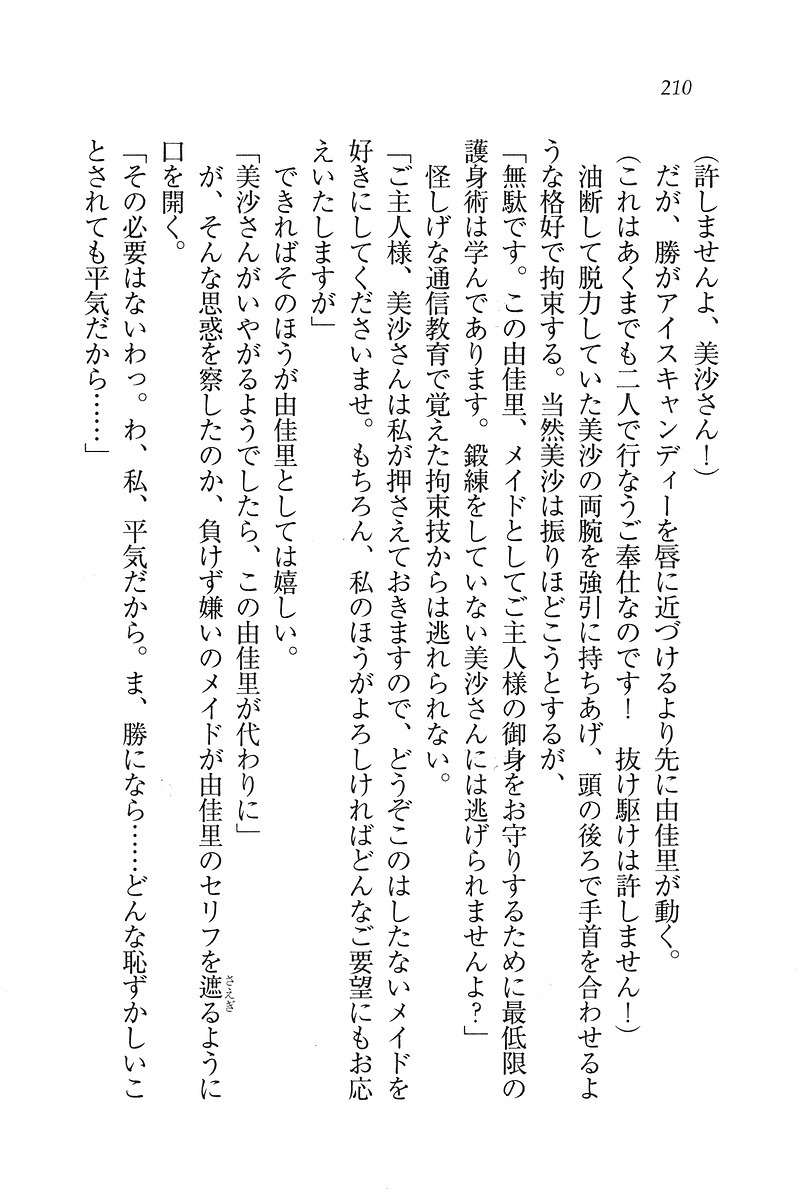 210
(許しませんよ、美沙さん！)
だが、勝がアイスキャンディーを唇に近づけるより先に由佳里が動く。
(これはあくまでも二人で行なうご奉仕なのです！　抜け駆けは許しません！)
油断して脱力していた美沙の両腕を強引に持ちあげ、頭の後ろで手首を合わせるよ
うな格好で拘束する。当然美沙は振りほどこうとするが、
「無駄です。この由佳里、メイドとしてご主人様の御身をお守りするために最低限の
護身術は学んであります。鍛練をしていない美沙さんには逃げられませんよ？」
怪しげな通信教育で覚えた拘束技からは逃れられない。
「ご主人様、美沙さんは私が押さえておきますので、どうぞこのはしたないメイドを
好きにしてくださいませ。もちろん、私のほうがよろしければどんなご要望にもお応
えいたしますが」
できればそのほうが由佳里としては嬉しい。
「美沙さんがいやがるようでしたら、この由佳里が代わりに」
が、そんな思惑を察したのか、負けず嫌いのメイドが由佳里のセリフを遮るように
さえぎ
口を開く。
「その必要はないわっ。わ、私、平気だから。ま、勝になら……どんな恥ずかしいこ
とされても平気だから……」